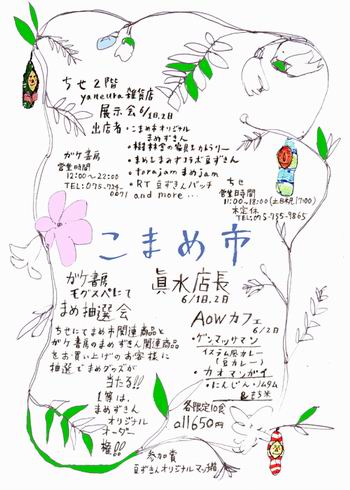 ちせ2階
yaneura雑貨店
展示会6/1日.2日
出店者・こまめ市オリジナル
まめずきん
・樹林舎の家具&カトラリー
・まめしまめオリボ豆ずきん
・torajam まめjam
・RT 豆ずきんバッチ
and more...
ガケ書房
営業時間
12:00〜22:00
TEL:075-724-
0071
ちせ
営業時間
11:00〜18:00(土日祝17:00)
水定休
TEL075-755-9865
こまめ市
ガケ書房
モグスペにて
まめ抽選会
眞水店長
6/1日.2日
ちせにてまめ市関連商品と
ガケ書房のまめずきん関連商品
をお買い上げのお客様に
抽選でまめグッズが
当たる!!
1等は、
まめずきん
オリジナル
オーダー
権!!
Aowカフェ
6/2日
・ゲンマッサマン
イスラム風カレー
(豆カレー)
・カオマンガイ
・にんじんソムタム
&もち米
各限定10食
all650円
参加賞
豆ずきんオリジナルマッチ箱